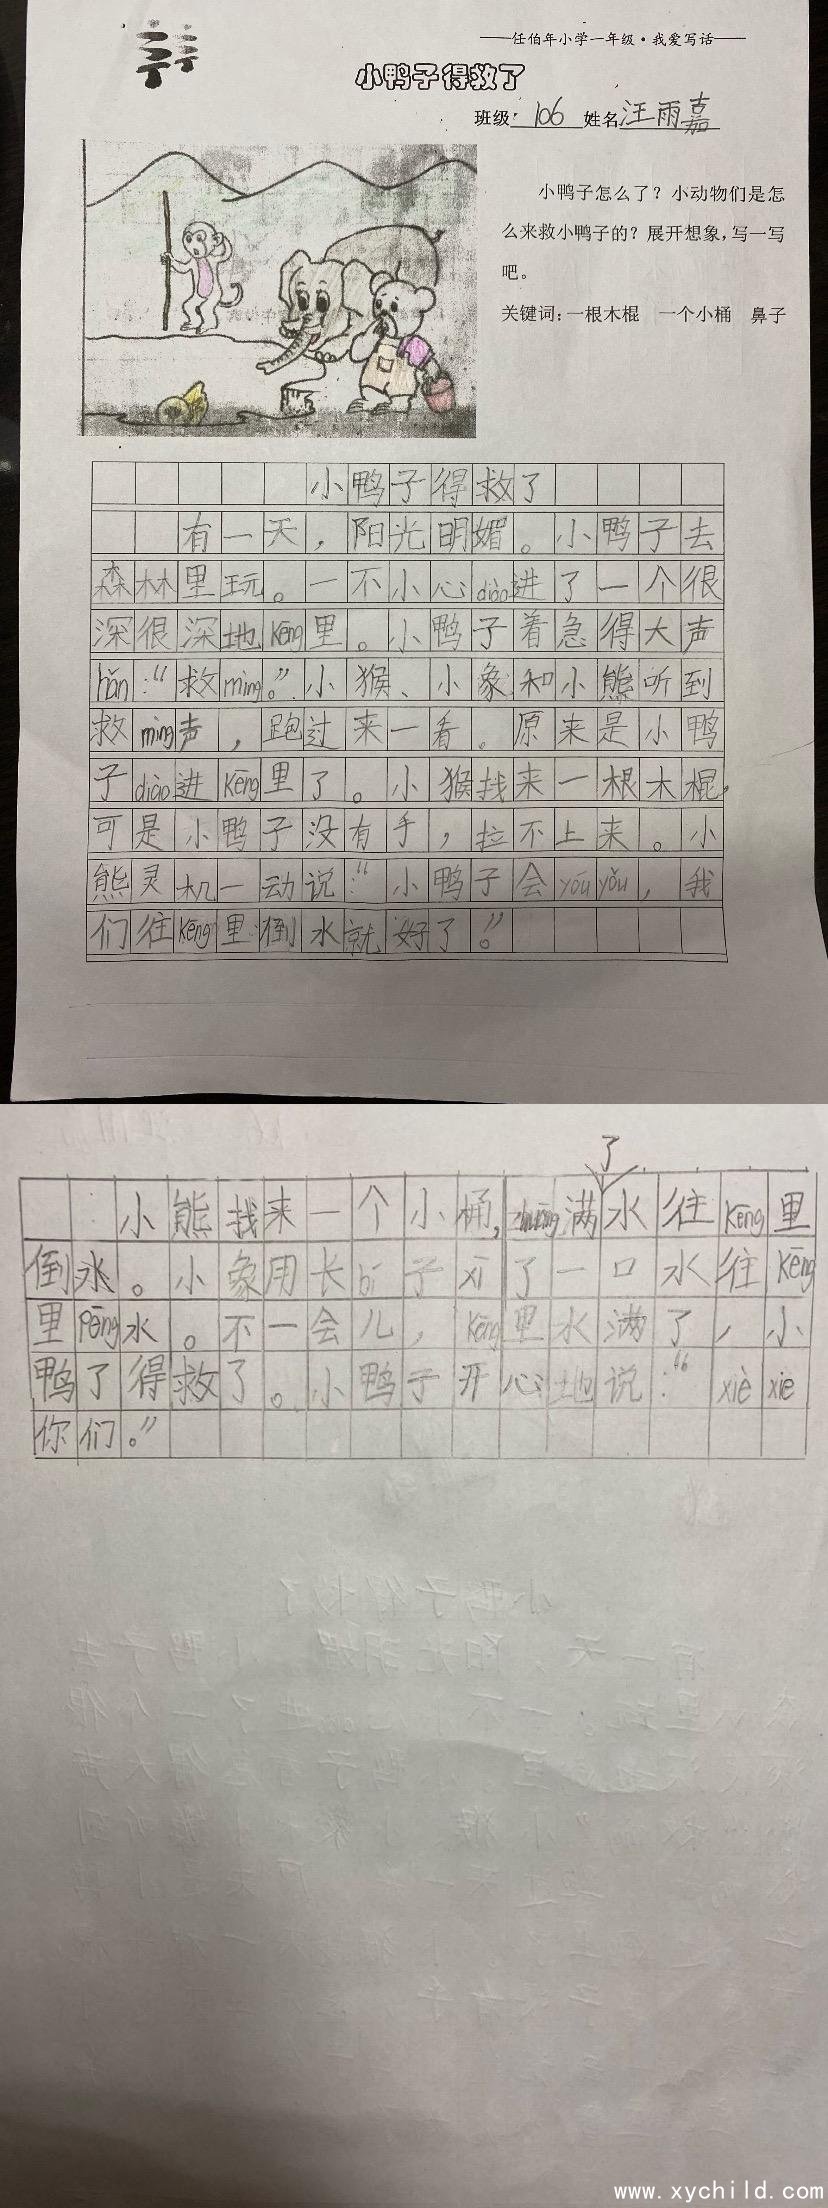 ——任伯年小学一年级·我爱写话——
小鸭子得救了
班级：106 姓名汪雨嘉
小鸭子怎么了？小动物们是怎
么来救小鸭子的？展开想象，写一写
吧。
关键词：一根木棍 一个小桶 鼻子
小鸭子得救了
有一天，阳光明媚。小鸭子去
森林里玩。一不小心diào进了一个很
深很深地kēng里。小鸭子着急得大声
hǎn：“救mìng。”小猴、小象和小熊听到
救mìng声，跑过来一看。原来是小鸭
子diào进kēng里了。小猴找来一根木棍，
可是小鸭子没有手，拉不上来。小
熊灵机一动说：“小鸭子会yóu yǒu，我
们往kēng里倒水就好了。”
了
小熊找来一个小桶，zhuāng满水往kēng里
倒水。小象用长bí子xī了一口水往kēng
里pēng水。不一会儿，kēng里水满了，小
鸭了得救了。小鸭子开心地说：“xiè xie
你们。”
www.xychild.com